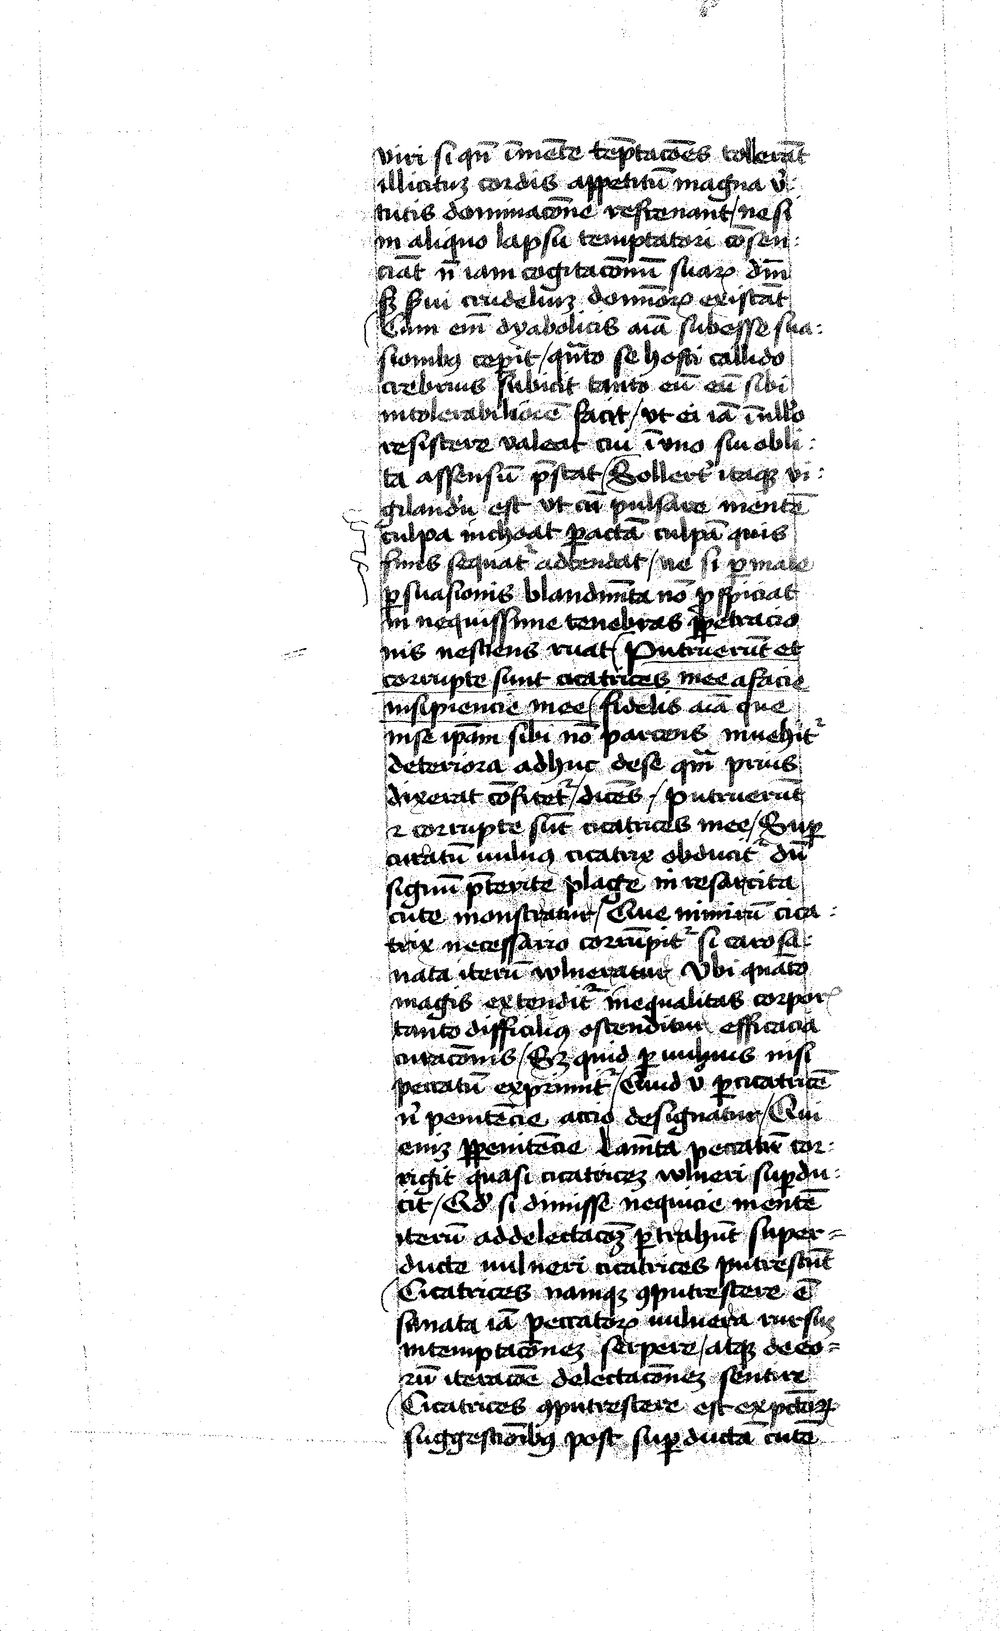 viri si qn̄ i͞mēte tēptacōēs tollerāt
illicituȝ cordis appetitū magna v̓:
tutis dominacōne refrenant / ne si
in aliquo lapsu temptatori cōsen:
ciāt n̄ iam cogitacōnū suaꝝ dn̄i
sȝ sui crudeliuȝ domnōꝝ existāt
Cum em̄ dyabolicis aīa subesse sua:
sionibꝰ cep̄it / qn̄to se hosti callido
crebrius subicit tanto eū eū sibi
intolerabiliorē facit / vt ei iā ī nullo
resistere valeat cui ī vno siu obli:
ta assensū p̄stat / Sollert̓ itaqȝ vi:
gilandū est vt cū pulsare mentē
culpa inchoat ꝑactā culpā quis
finis sequat᷑ adtendat / ne si ꝑ male
ꝑsuasionis blandimēta nō ꝓspiciat
in nequissime tenebras ꝑpetracio
nis nesciens ruat / Putruerūt et
corrupte sunt cicatrices mee a facie
insipiencie mee / fidelis aīa que
in se ipām sibi nō parcens inuehit᷑
deteriora adhuc de se qm̄ prius
dixerat cōfitet᷑ / dicēs / Putruerūt
⁊ corrupte sūt cicatrices mee / Suꝑ
curatū uulnꝰ cicatrix obducit᷑ dū
signū p̄terite plage in resarcita
cute monstratur / Que nimirū cica:
trix necessario corrūpit᷑ si caro sa:
nata iterū wlneratur Vbi quāto
magis extendit᷑ inequalitas corpor᷑
tanto difficiliꝰ ostenditur efficacia
curacōnis / Sȝ quid ꝑ uulnus nisi
peccatū exprimit᷑ / Quid v̓ ꝑ cicatricē
n̓ penitēcie accio designatur / Qui
eniȝ ꝑ penitēcie lamēta peccatum cor:
rigit quasi cicatriceȝ wlneri suꝑdu:
cit / Qd̓ si dimisse nequicie mentē
iterū ad delectacōȝ ꝑtrahūt super=
ducte uulneri cicatrices putrescūt
Cicatrices namqȝ ꝯputrescere ē
sanata iā peccatoꝝ uulnera rursuȝ
in temptacōneȝ serpere / atqȝ de eo=
rū iteracōe delectacōneȝ sentire
Cicatrices ꝯputrescere est
suggestionībꝰ post suꝑductā cutē